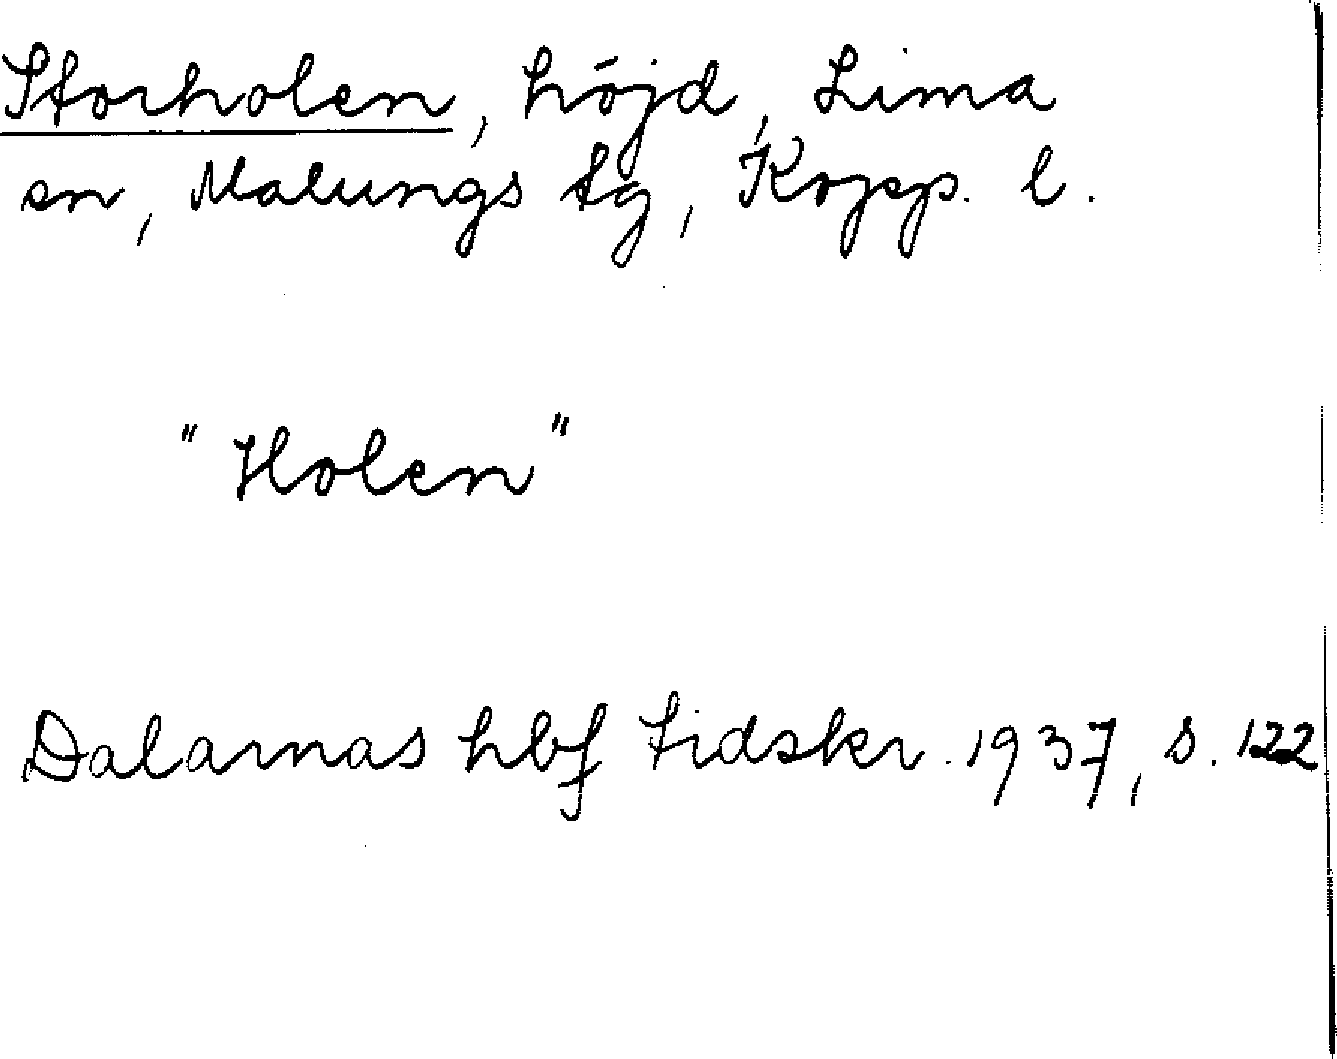 Storholen, höjd, Lima
sn, Malungs tg, Kopp. l.
"Holen"
Dalarnas hbf tidskr. 1937, s. 122